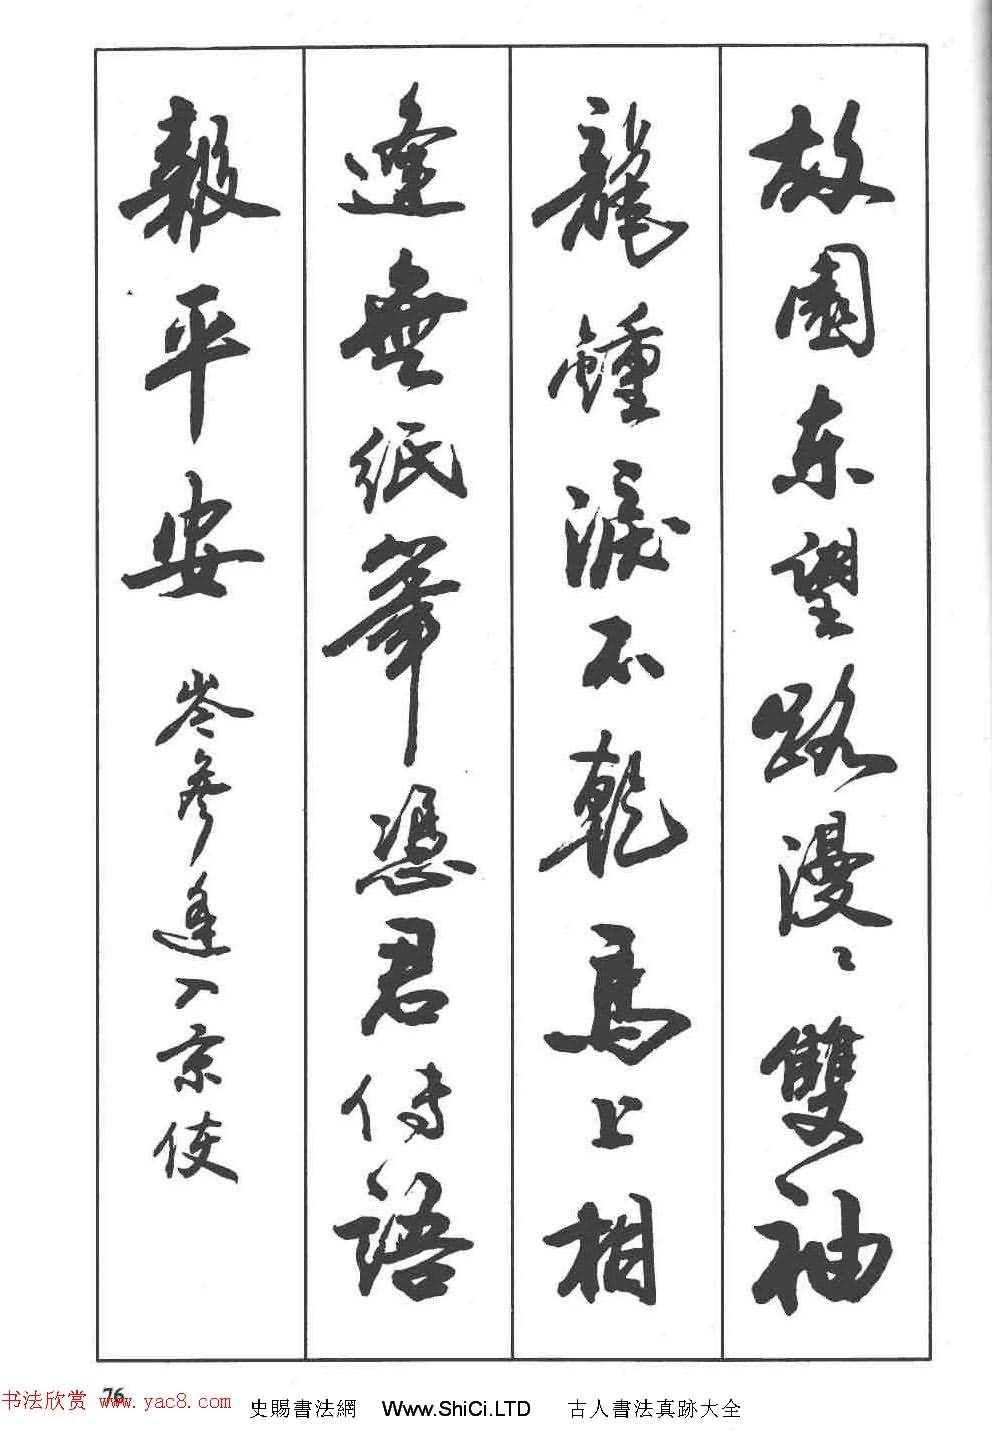 故园东望路漫〻雙袖
龍鍾淚不乾馬上相
逢無紙筆憑君傳語
報平安 岑參逢入京使
76
书法欣赏 www.yac8.com
史賜書法網 Www.ShiCi.LTD 古人書法真跡大全